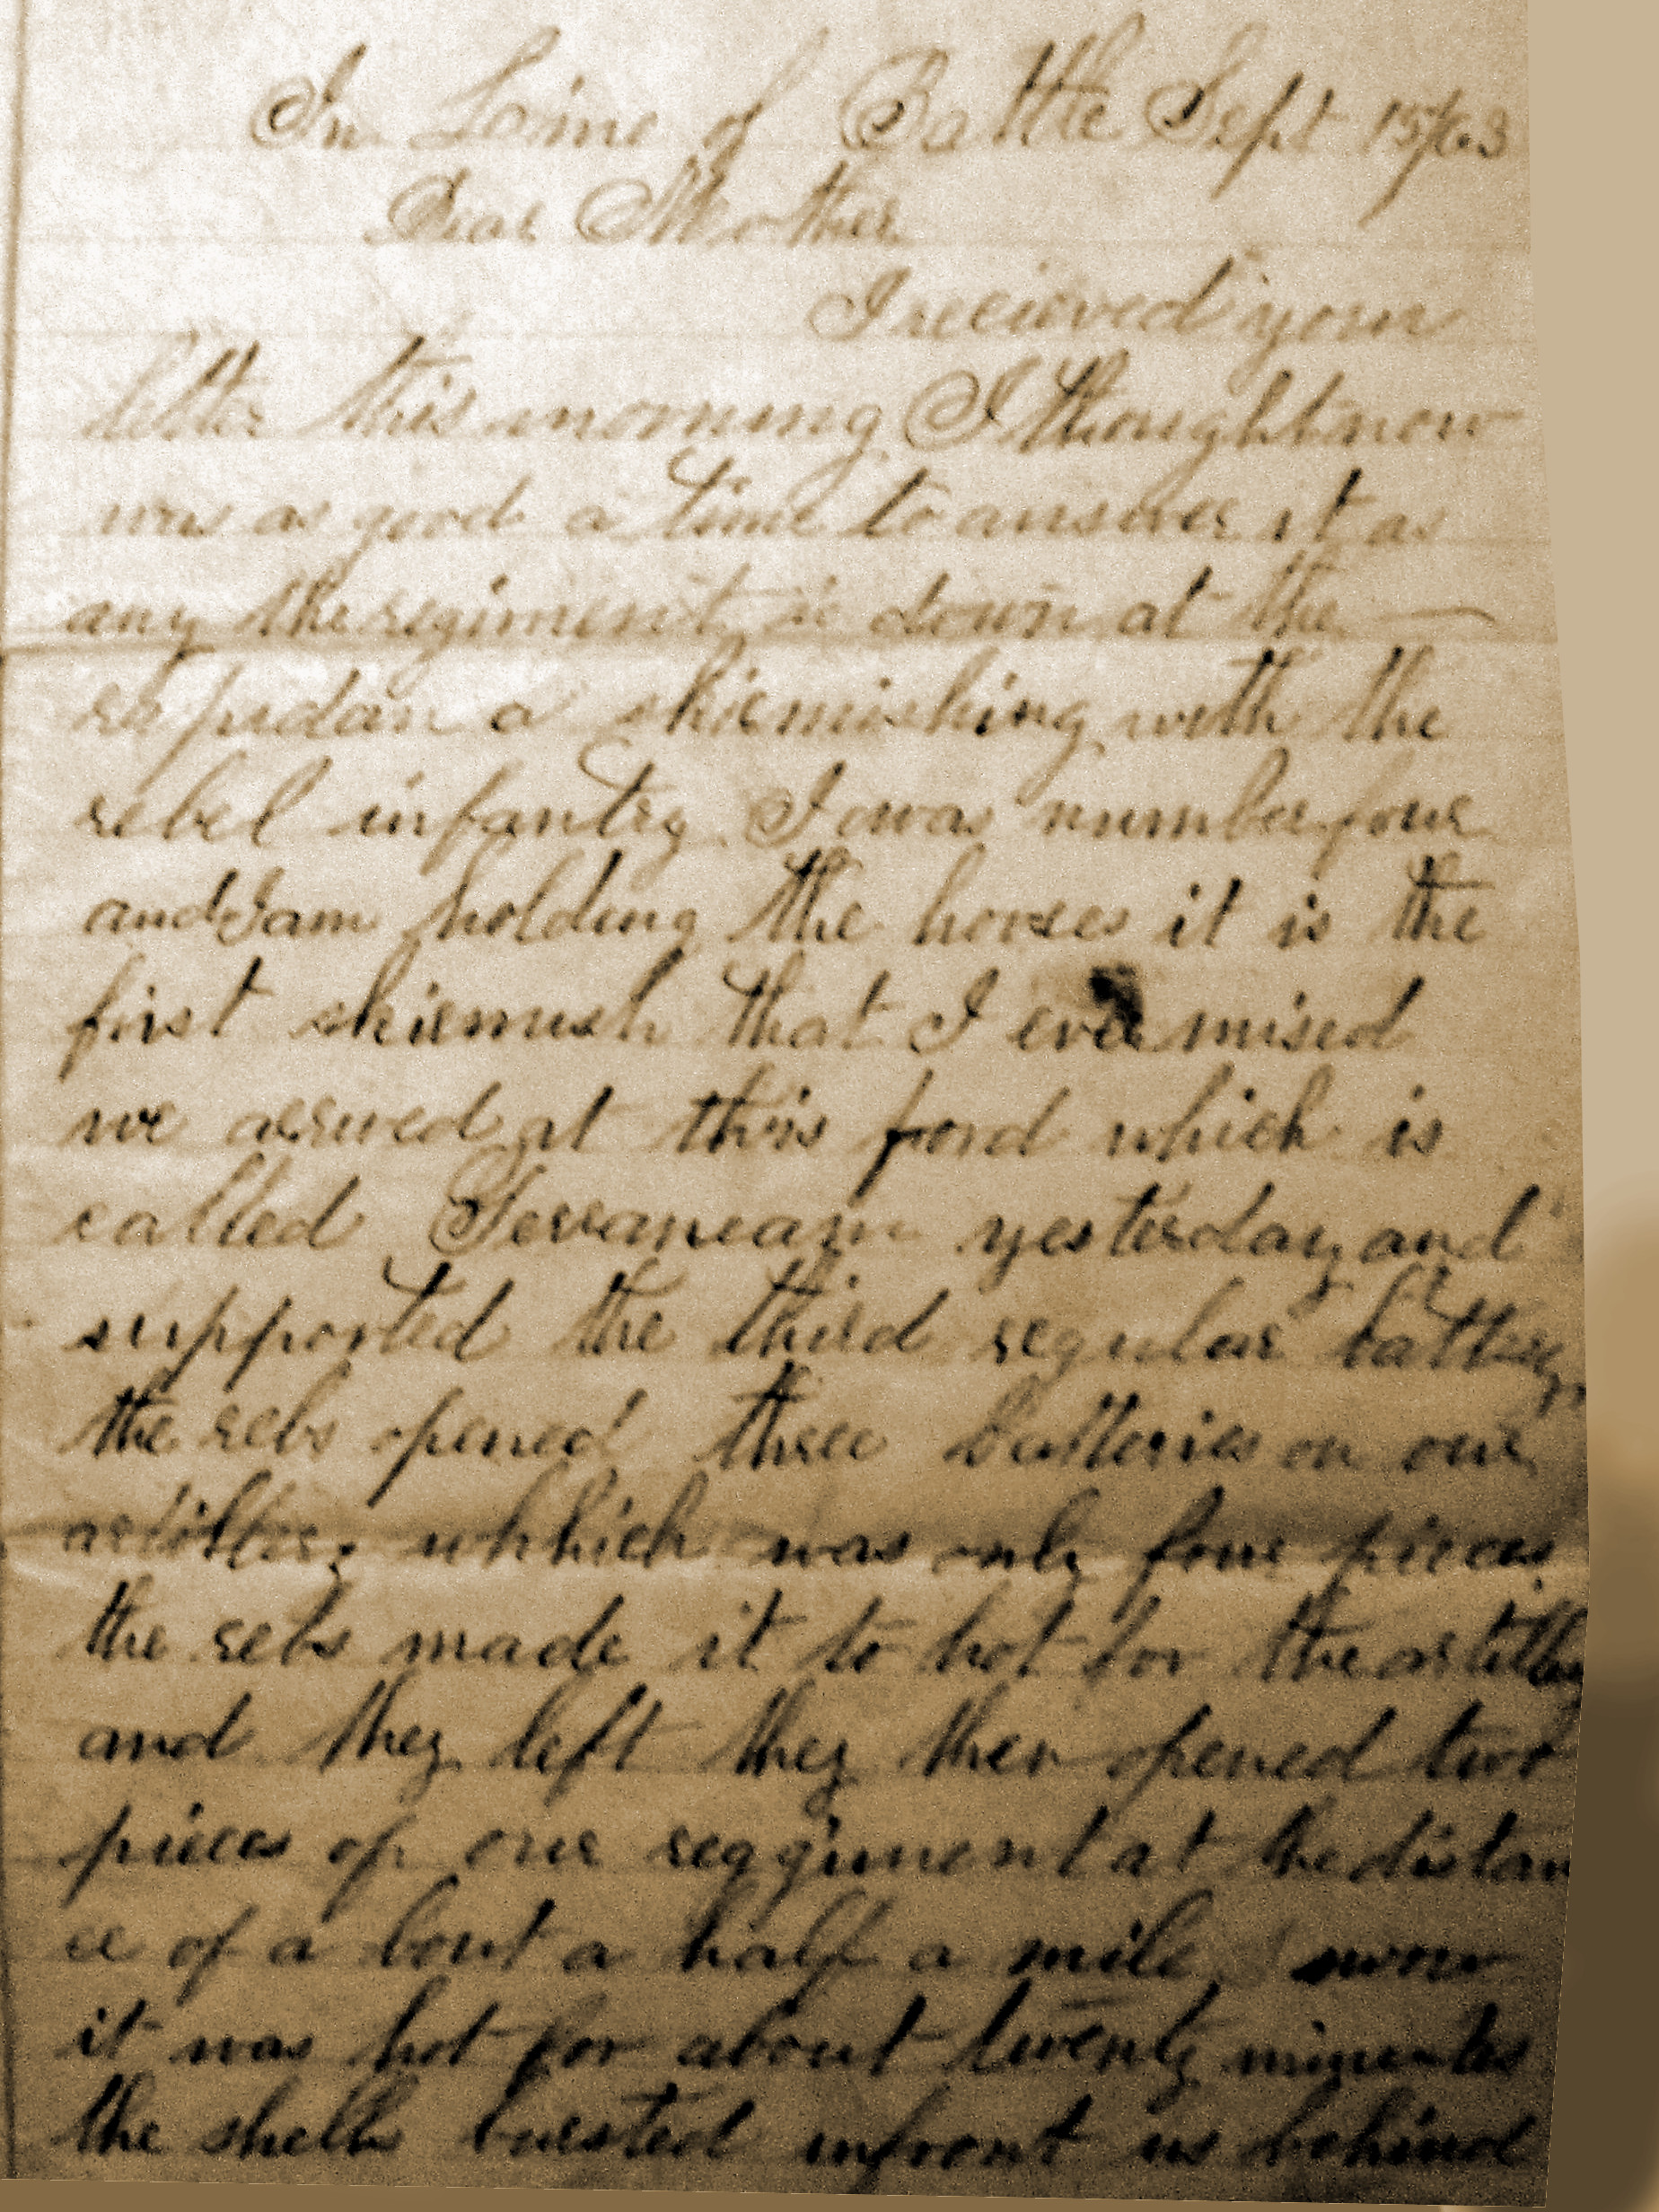 In Line of Battle Sept 15/63
Dear Mother
I recieved your
letter this morning I thought now
was as good a time to answer it as
any the regiment is down at the
rapidan a skirmishing with the
rebel infantry I was number four
and I am holding the horses it is the
first skirmish that I ever mised
we arrived at this ford which is
called yesterday and
supported the third regular battery
the rebs opened three batteries on our
artillery whhich was only four pieces
the rebs made it to hot for the artillery
and they left they then opened two
pieces of our reggiment at the distan
ce of a bout a half a mile
it was hot for about twenty minutes
the shells bursted infront us behind